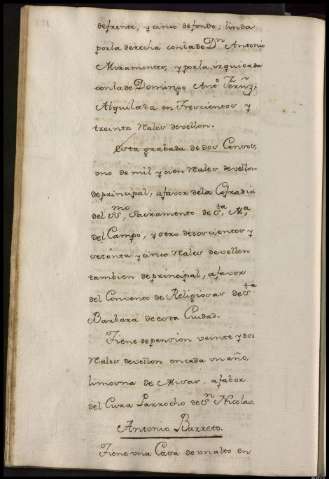 de frente, y cinco de fondo; linda
por la derecha con la de Dn. Antonio
Miramontes, y por la yzquierda
con la de Domingo Anto.
Alquilada en Trescientos y
treinta Reales de vellon.
Esta grabada de dos Censos,
uno de mil y cien Reales de vellon
de principal, a favor de la Cofradia
del SSmo. Sacramento de Sta. Ma.
del Campo, y otro doscientos y
setenta y cinco Reales de vellon
tambien de principal, a favor
del Convento de Religiosas de Sta.
Barbara de esta Ciudad.
Tiene de pension veinte y dos
Reales de vellon en cada un año,
limosna de Misas a fabor
del Cura Parrocho de Sn. Nicolas.
Antonio Barreto.
Tiene una Casa de un alto en